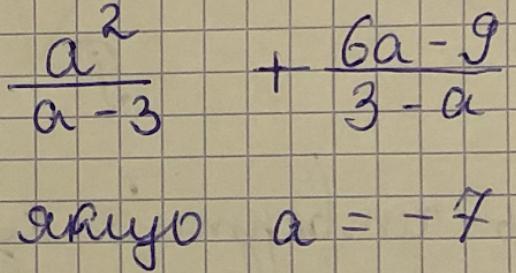 a²/(a - 3) + (6a - 9)/(3 - a)
якщо a = - 7